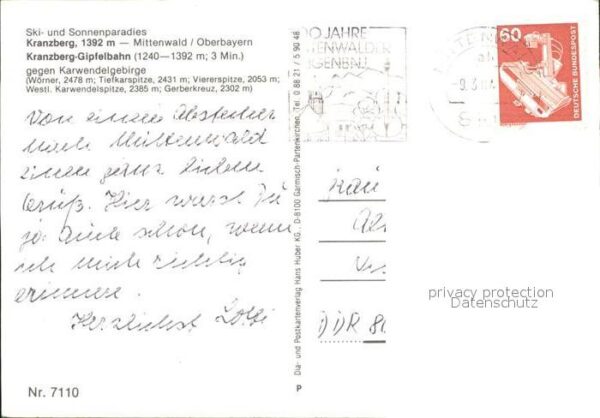 Ski- und Sonnenparadies
Kranzberg, 1392 m — Mittenwald / Oberbayern
Kranzberg-Gipfelbahn (1240—1392 m; 3 Min.)
gegen Karwendelgebirge
(Wörner, 2478 m; Tiefkarspitze, 2431 m; Viererspitze, 2053 m;
Westl. Karwendelspitze, 2385 m; Gerberkreuz, 2302 m)
Von einem Abstecher
nach Mittenwald
einen ganz lieben
Gruß. Hier warst Du
ja auch schon, wenn
ich mich richtig
erinnere.
Herzlichst Lotti
Nr. 7110
Dia- und Postkartenverlag Hans Huber KG., D-8100 Garmisch-Partenkirchen, Tel. 0 88 21 / 5 90 48
P
00 JAHRE
TENWALDER
IGENBAU
60
DEUTSCHE BUNDESPOST
Frau
DDR 80
privacy protection
Datenschutz